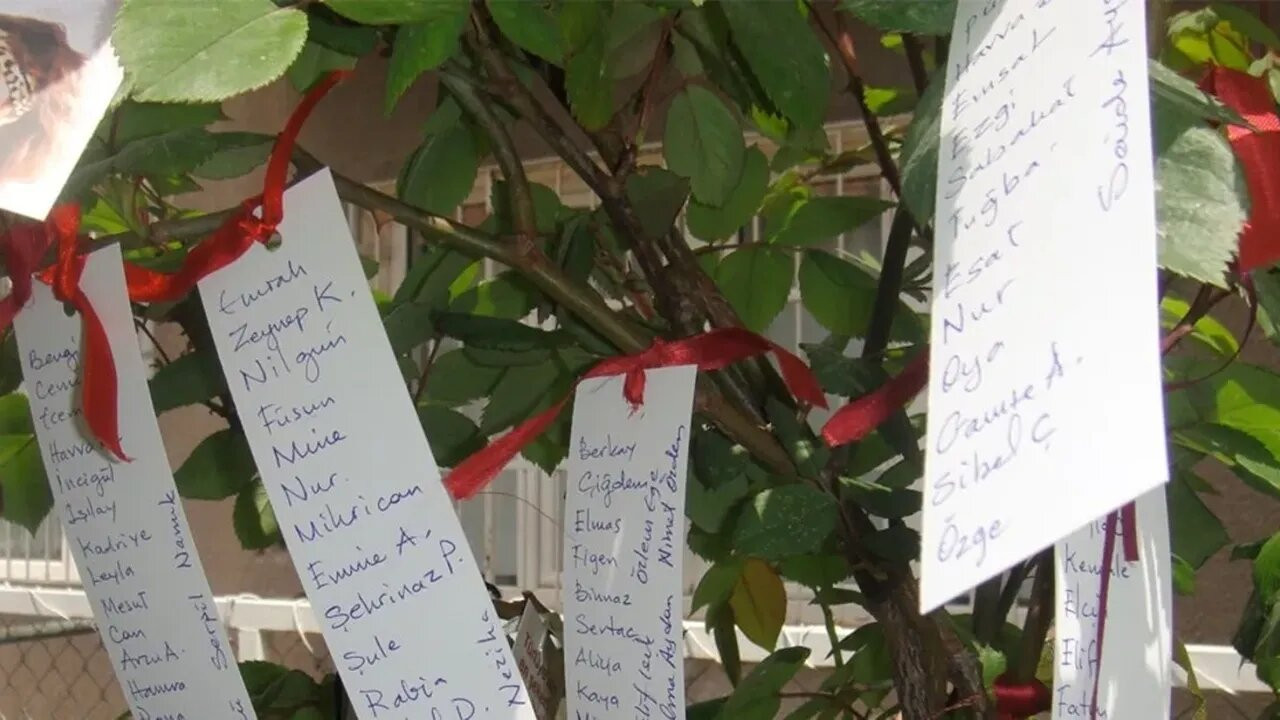 Cem
Havva
İncigül
Işılay
Kadriye
Leyla
Mesut
Can
Arzu A.
Hamra
Namık
Serpil
Emrah
Zeynep K.
Nilgün
Füsun
Mine
Nur.
Mihrican
Emine A.
Şehrinaz P.
Şule
Rabia
D.
Nezihe
Berkay
Çiğdem
Elmas
Figen
Binnaz
Sertaç
Aliya
Kaya
Özlem Ege
Nimet Özden
Elif
Havva
Emsal
Ezgi
Sabahat
Tuğba.
Esat
Nur
Oya
Gamze A.
Sibel Ç
Özge
Saide
Elif